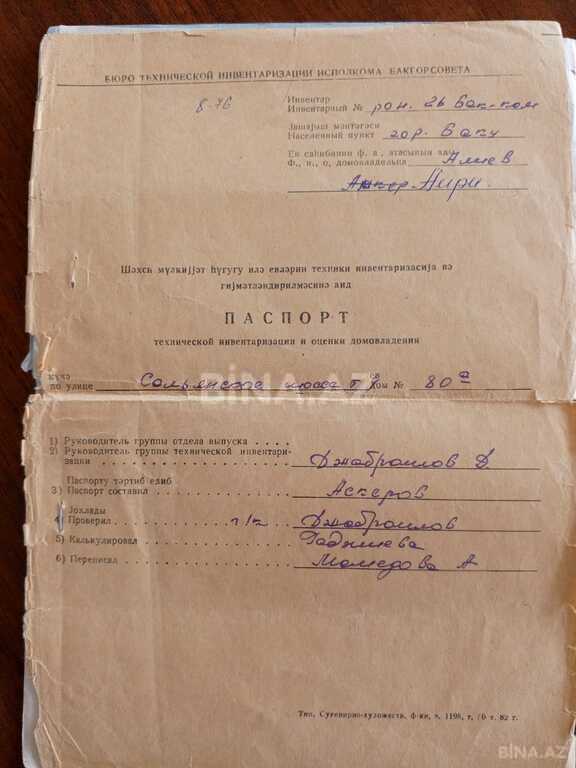 БЮРО ТЕХНИЧЕСКОЙ ИНВЕНТАРИЗАЦИИ ИСПОЛКОМА БАКГОРСОВЕТА
8-76
Инвентар
Инвентарный № рон. 26 Бак-ком
Јашајыш мәнтәгәси
Населенный пункт гор. Баку
Ев саһибинин ф. а., атасынын ады
Ф., и., о, домовладельца Алиев
Шәхси мүлкијјәт һүгугу илә евләрин техники инвентаризасија вә
гијмәтләндирилмәсинә аид
ПАСПОРТ
технической инвентаризации и оценки домовладения
күчә
по улице Сальянское шоссе дом № 80а
BİNA.AZ
1) Руководитель группы отдела выпуска . . . .
2) Руководитель группы технической инвентари-
зации . . . . . . . . . . . . Джабраилов Д
Паспорту тәртиб едиб
3) Паспорт составил . . . . . . . Аскеров
Јохлады
4) Проверил . . . . . . . . Джабраилов
5) Калькулировал . . . . . . . Гаджиева
6) Переписал . . . . . . . . Мамедова А
Тип. Сувенирно-художеств. ф-ки, з. 1198, т. /0 т. 82 г.
BİNA.AZ